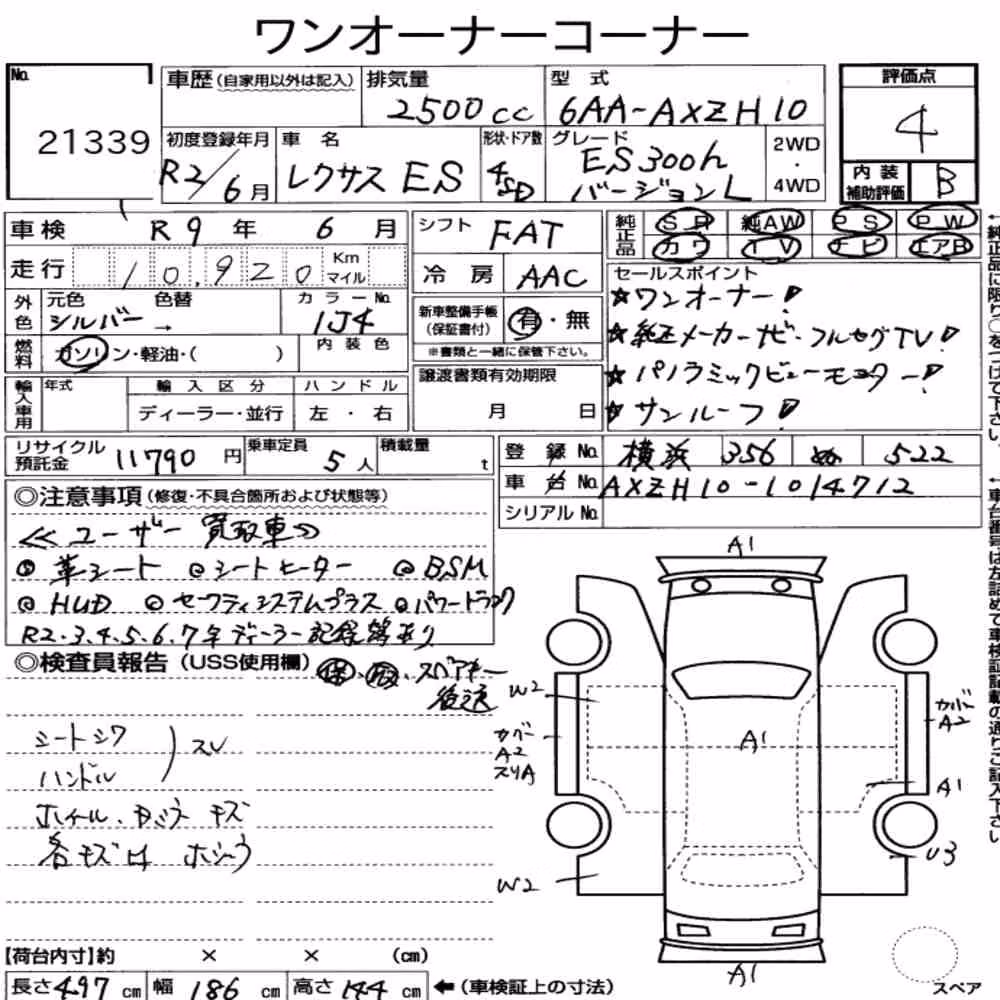 ワンオーナーコーナー
No. 21339
車歴 (自家用以外は記入) 排気量 2500cc 型式 6AA-AXZH10
評価点 4
初度登録年月 R2/6月 車名 レクサス ES 形状・ドア数 4SD グレード ES300h バージョンL 2WD・4WD
内装補助評価 B
車検 R9年 6月 シフト FAT 純正品 SR 純AW PS PW
カワ TV ナビ エアB
走行 10,920 Km マイル 冷房 AAC セールスポイント
外色 元色 シルバー → 色替 カラーNo. 1J4 新車整備手帳(保証書付) 有・無
☆ワンオーナー!
内装色 ※書類と一緒に保管下さい。
☆純正メーカーナビ・フルセグTV!
燃料 ガソリン・軽油・( )
☆パノラミックビューモニター!
輸入車用 年式 輸入区分 ハンドル 譲渡書類有効期限
☆サンルーフ!
ディーラー・並行 左・右 月 日
リサイクル預託金 11790円 乗車定員 5人 積載量 t
登録No. 横浜 356 ぬ 522
車台No. AXZH10-1014712
シリアルNo.
◎注意事項(修復・不具合箇所および状態等)
≪ユーザー買取車≫
◎革シート ◎シートヒーター ◎BSM
◎HUD ◎セーフティシステムプラス ◎パワートランク
R2.3.4.5.6.7年ディーラー記録簿あり
◎検査員報告(USS使用欄) 保・取・スペアキー
後送
シートシワ
ハンドル
スレ
ホイール・キズ
各キズ ホシュウ
A1
W2
カバー
A2
スリA
A1
カバー
A2
A1
U3
W2
A1
スペア
【荷台内寸】約 × × (cm)
長さ 497 cm 幅 186 cm 高さ 144 cm ←(車検証上の寸法)
←純正品に限り○をつけて下さい。
←車台番号は左詰めで車検証記載の通りご記入下さい